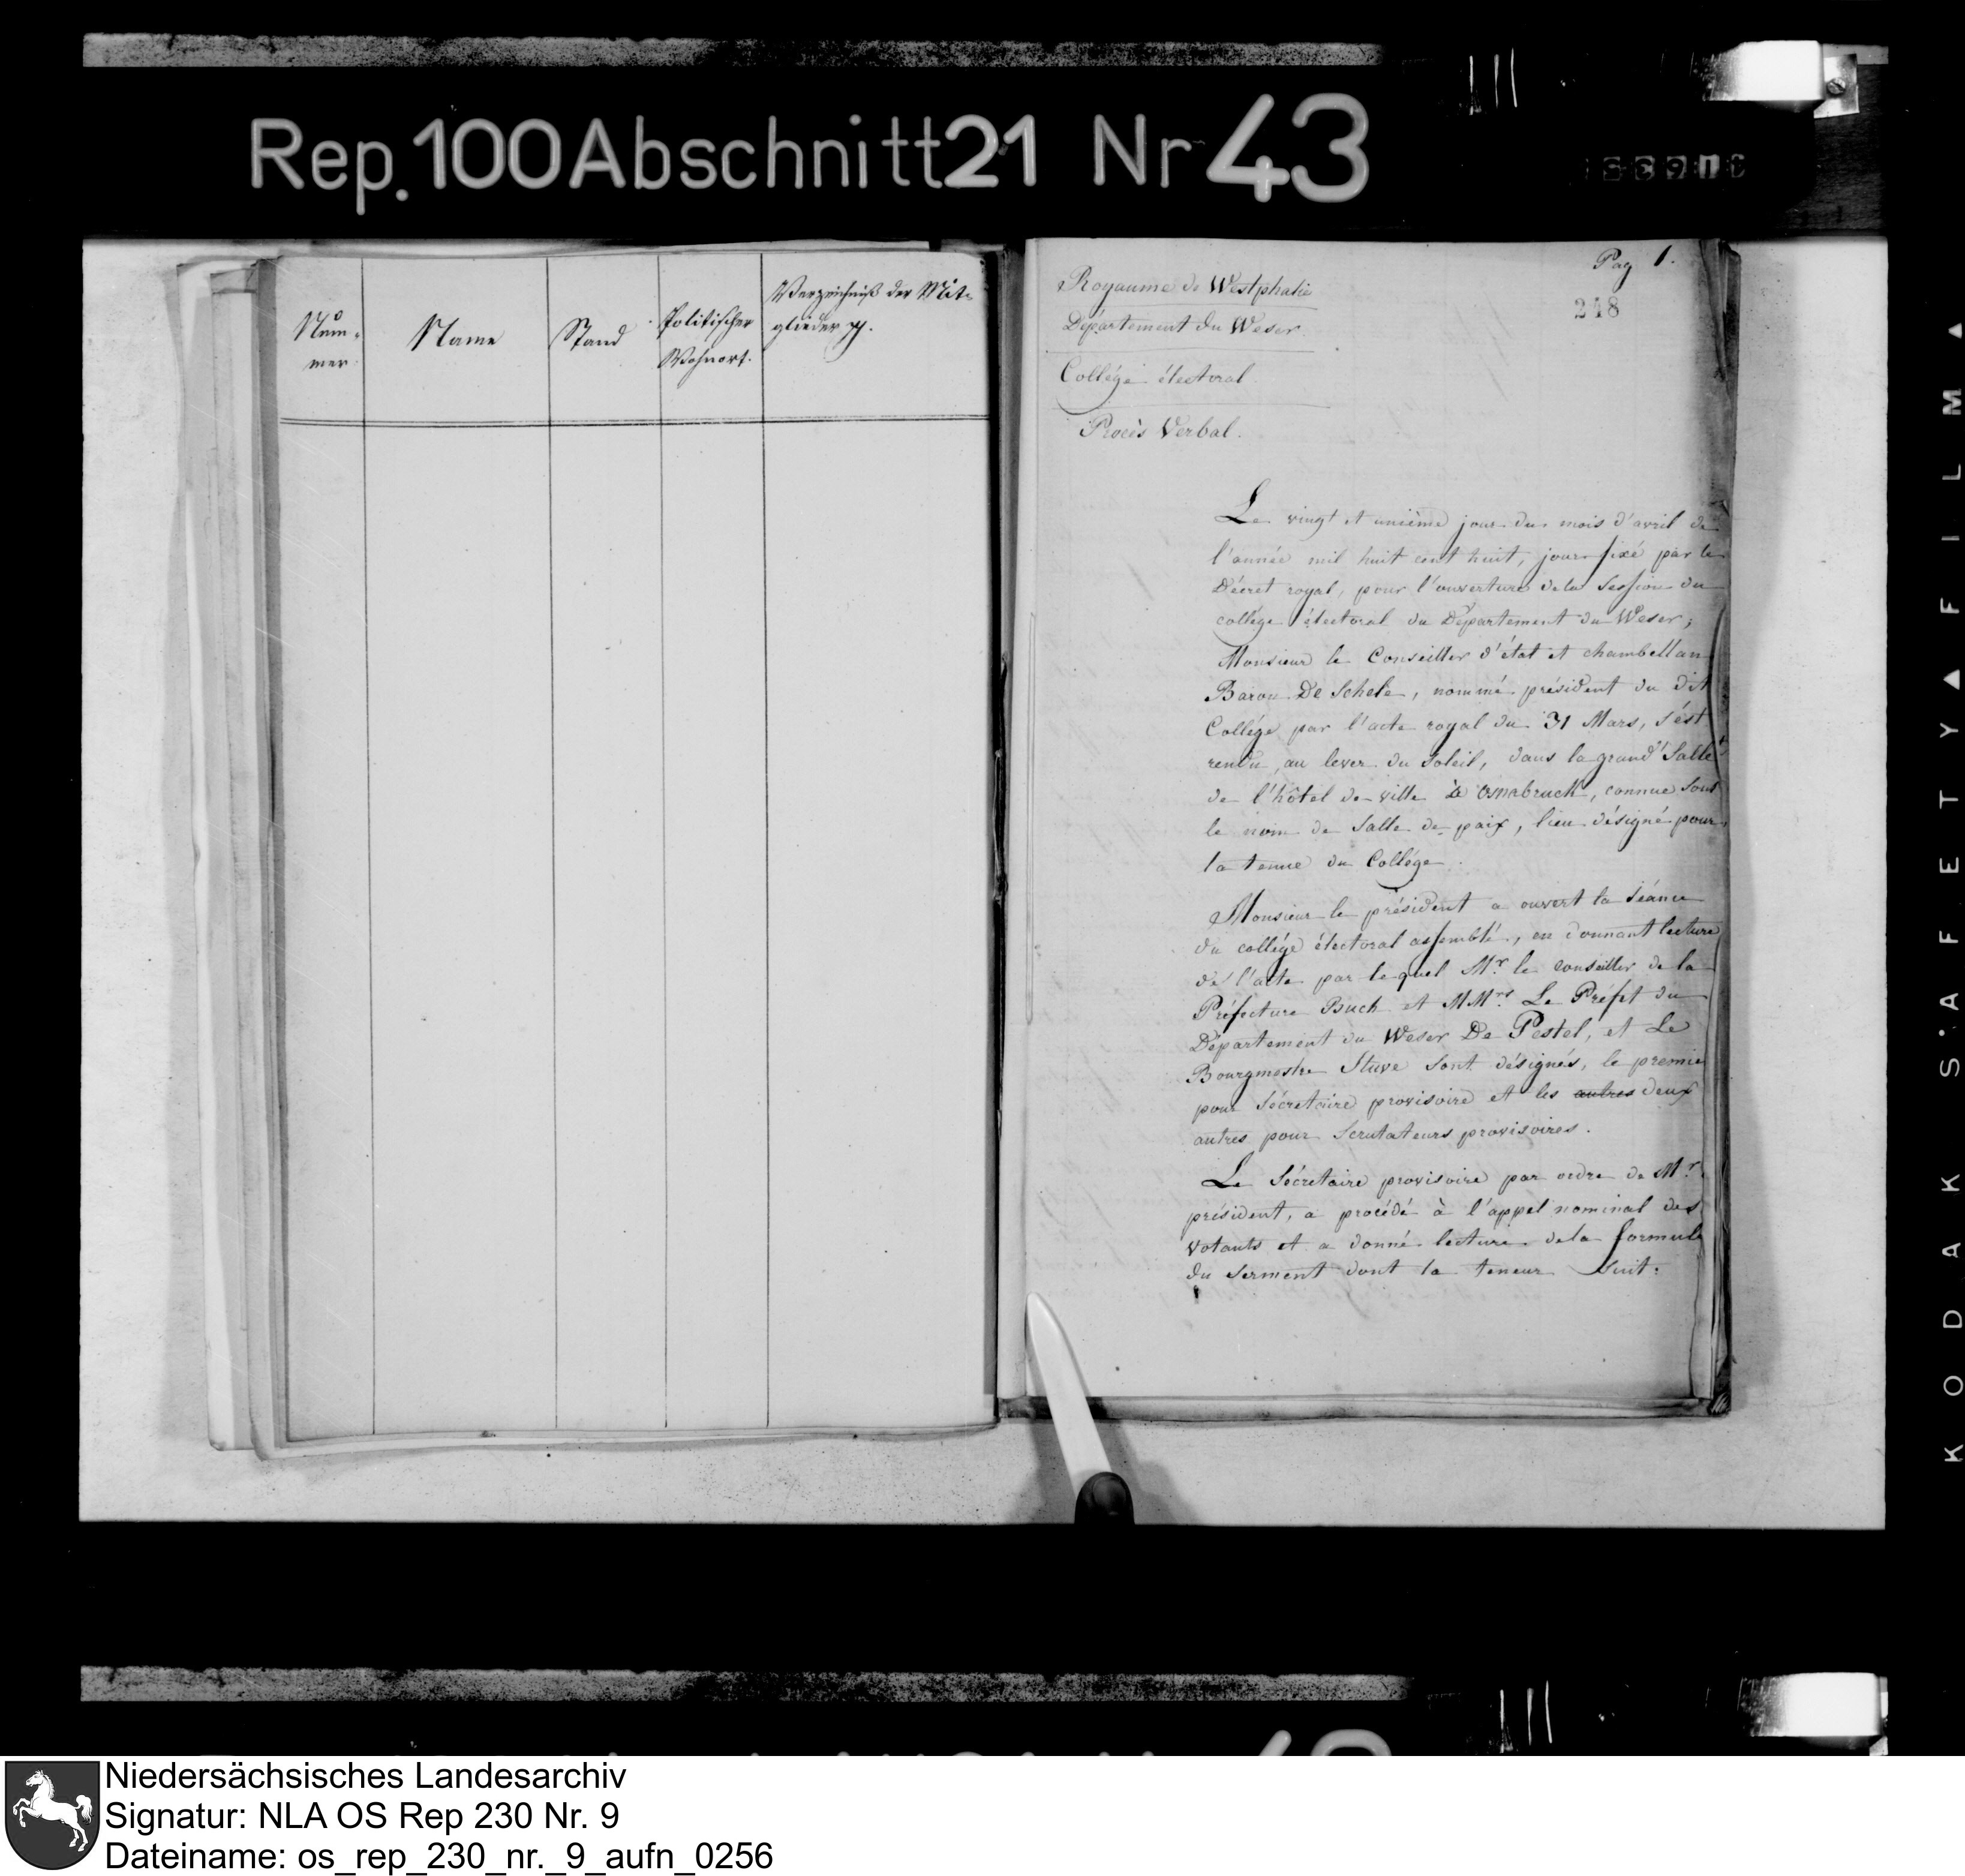 Rep. 100 Abschnitt 21 Nr 43
Num-
mer
Name
Stand
Politischer
Wohnort.
Verzeichniß der Mit-
glieder pp.
Pag 1.
248
Royaume de Westphalie
Département du Weser.
Collége électoral
Procès Verbal.
Le vingt et unième jour du mois d'avril de
l'année mil huit cent huit, jour fixé par le
Décret royal, pour l'ouverture de la Session du
collége électoral du Département du Weser;
Monsieur le Conseiller d'état et chambellan
Baron De Schele, nommé président du dit
Collége par l'acte royal du 31 Mars, s'ést
rendu, au lever du Soleil, dans la grand' Salle
de l'hôtel de ville à Osnabruck, connue sous
le nom de Salle de paix, lieu désigné pour
la tenue du Collége.
Monsieur le président a ouvert la Séance
du collége électoral assemblé, en donnant lecture
de l'acte par lequel Mr. le conseiller de la
Préfecture Buch et MMrs. Le Préfet du
Département du Weser De Pestel, et Le
Bourgmestre Stuve sont désignés, le premie
pour Sécretaire provisoire et les autres deux
autres pour Scrutateurs provisoires.
Le Sécretaire provisoire par ordre de Mr.
président, a procédé à l'appel nominal des
votants et a donné lecture de la formule
du Serment dont la teneur Suit:
KODAK SAFETY FILM
Niedersächsisches Landesarchiv
Signatur: NLA OS Rep 230 Nr. 9
Dateiname: os_rep_230_nr._9_aufn_0256